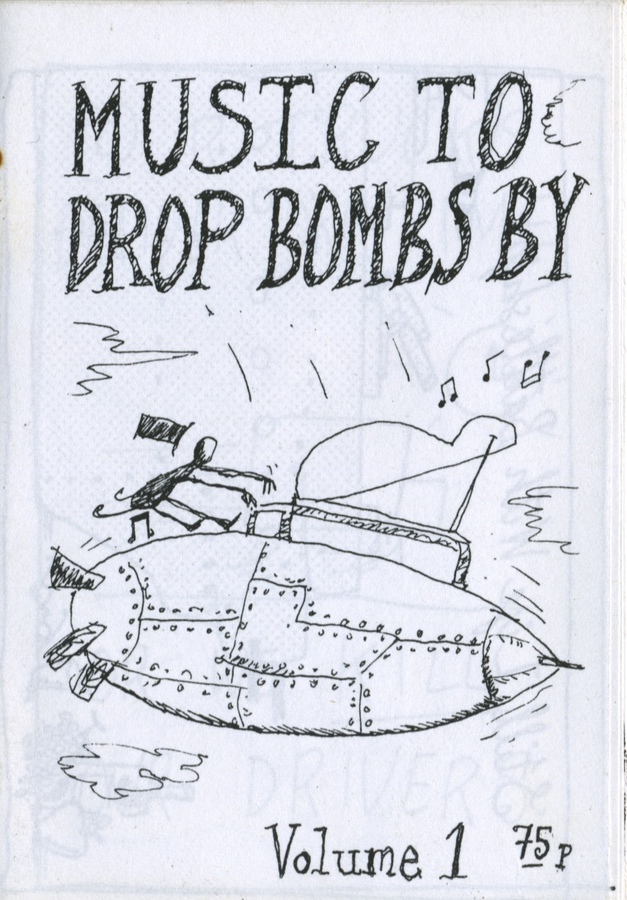 MUSIC TO
DROP BOMBS BY
DRIVER
Volume 1 75p